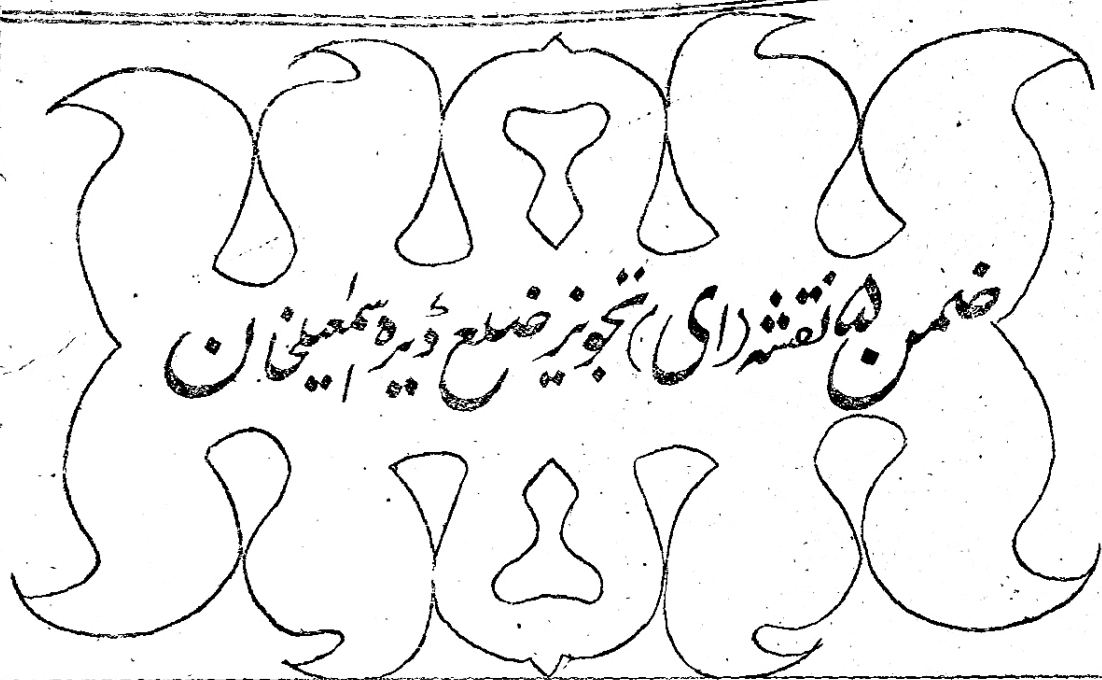 ضمن ۵ نقشہ (ای) تجویز ضلع ڈیرہ اسمٰعیلخان